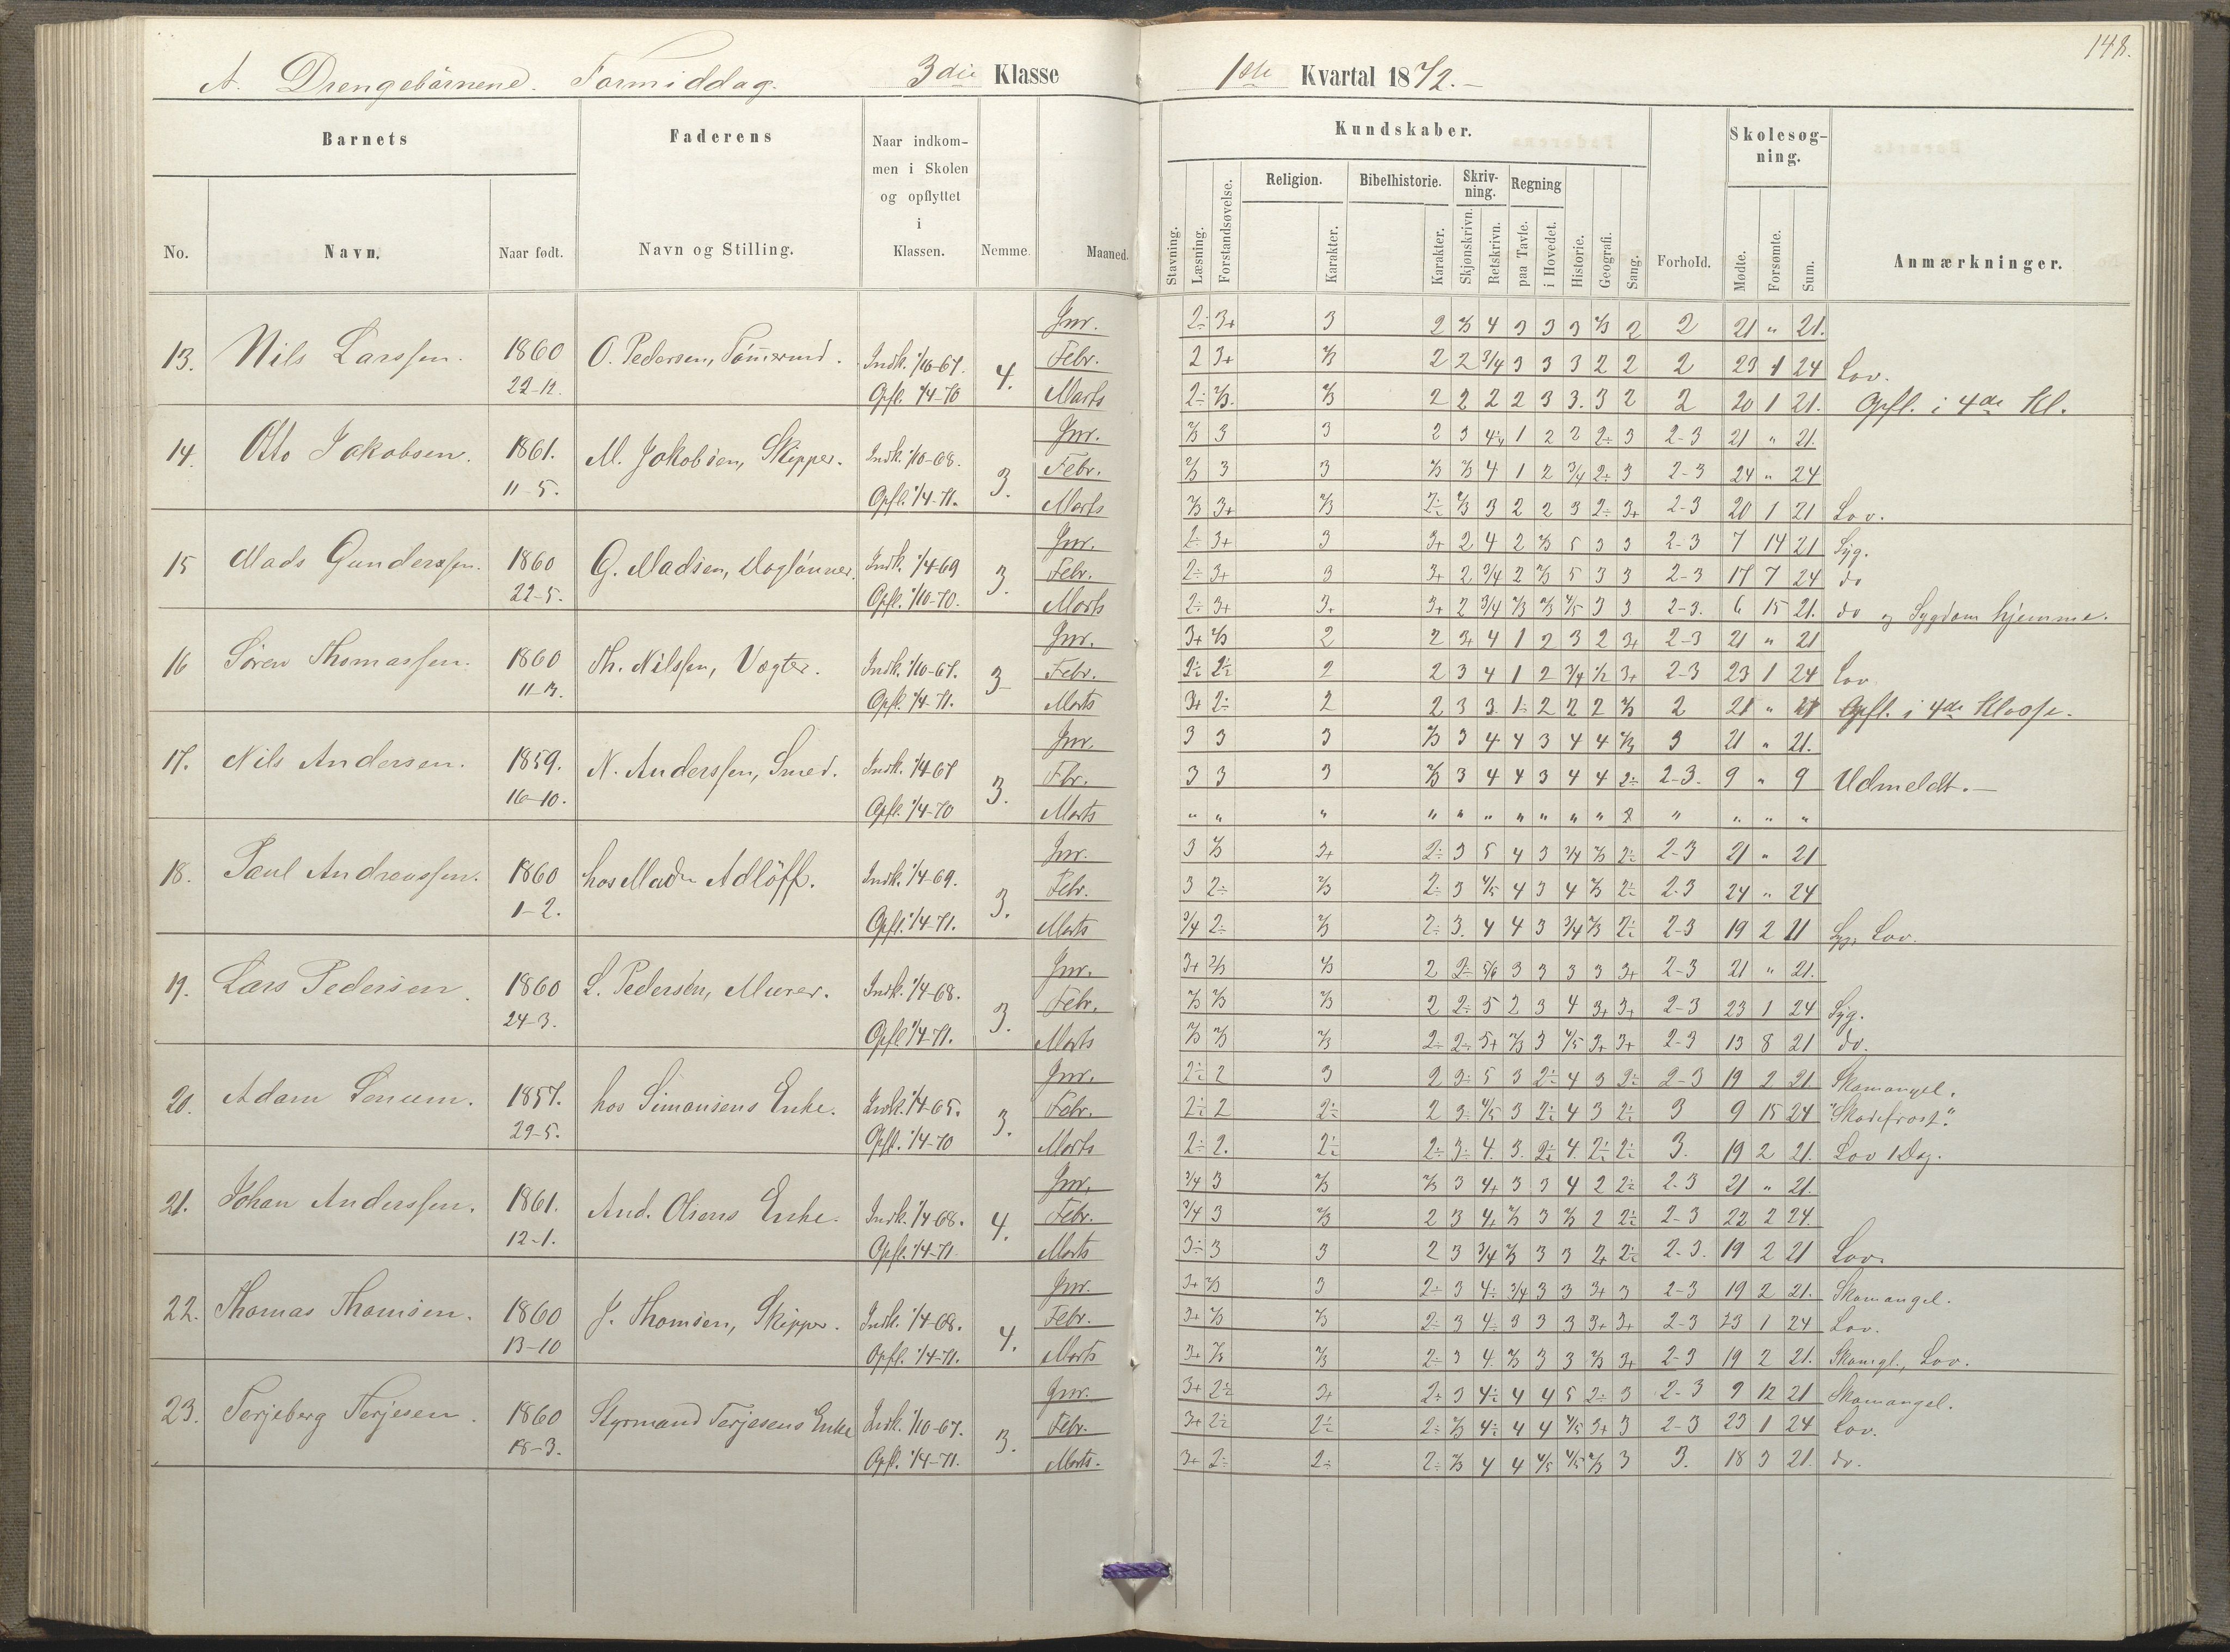 148.
A. Drengebørnene. Formiddag. 3die Klasse 1ste Kvartal 1872.
Barnets Faderens Naar indkommen i Skolen og opflyttet i Klassen. Nemme. Maaned. Kundskaber. Forhold. Skolesøgning. Anmærkninger.
No. Navn. Naar født. Navn og Stilling.
Stavning. Læsning. Forstandsøvelse. Religion. Karakter. Bibelhistorie. Karakter. Skrivning. Skjønskrivn. Retskrivn. Regning paa Tavle. i Hovedet. Historie. Geografi. Sang. Mødte. Forsømte. Sum.
13. Nils Larssen. 1860 22-12. O. Pedersen, Tømmermd. Indk. 1/10-67. Opfl. 1/4-70 4.
Jnr. 2÷ 3+ 3 2 2/3 4 3 3 3 2/3 2 2 21 " 21.
Febr. 2 3+ 2/3 2 2 3/4 3 3 3 2 2 2 23 1 24 Lov.
Marts 2÷ 2/3. 2/3 2 2 2 2 3 3. 3 2 2 20 1 21. Opfl. i 4de Kl.
14. Otto Jakobsen. 1861. 11-5. M. Jakobsen, Skipper. Indk. 1/10-68. Opfl. 1/4-71. 3.
Jnr. 2/3 3 3 2 3 4÷ 1 2 2 2÷ 3 2-3 21 " 21.
Febr. 2/3 3 3 2/3 2/3 4 1 2 3/4 2÷ 3 2-3 24 " 24
Marts 2/3 3+ 2/3 2÷ 2/3 3 2 2 3 2÷ 3+ 2-3 20 1 21 Lov.
15 Mads Gunderssen. 1860 22-5. G. Madsen, Daglønner. Indk. 1/4-69 Opfl. 1/10-70. 3.
Jnr. 2÷ 3+ 3 3+ 2 4 2 2/3 5 3 3 2-3 7 14 21 Syg.
Febr. 2÷ 3+ 3 3+ 2 3/4 2 2/3 5 3 3 2-3 17 7 24 do
Marts 2÷ 3+ 3+ 3+ 2 3/4 2/3 2/3 4/5 3 3 2-3. 6 15 21. do og Sygdom hjemme.
16 Søren Thomassen. 1860 Th. Nilssen, Vægter. Indk. 1/10-67. Opfl. 1/4-71. 3
Jnr. 3+ 2/3 2 2 3+ 4 1 2 3 2 3+ 2-3 21 " 21
Febr. 2÷ 2÷ 2 2 3 4 1 2 3/4 1/2 3+ 2-3 23 1 24 Lov
Marts 3+ 2÷ 2 2 3 3 1÷ 2 2 2 2/3 2 21 " 21 Opfl. i 4de Klasse.
17. Nils Andersen. 1859. 16-10. N. Anderssen, Smed. Indk. 1/4-67 Opfl. 1/4-70 3.
Jnr. 3 3 3 2/3 3 4 4 3 4 4 2/3 3 21 " 21.
Fbr. 3 3 3 2/3 3 4 4 3 4 4 2÷ 2-3. 9 " 9 Udmeldt.
Marts " " " " " " " " " " " " " "
18. Paul Andreassen. 1860 1-2. hos Mad. Adlöff. Indk. 1/4-69. Opfl. 1/4-71. 3.
Jnr. 3 2/3 3+ 2÷ 3 5 4 3 3/4 2/3 2÷ 2-3 21 " 21
Febr. 3 2÷ 2/3 2÷ 3 4/5 4 3 4 2/3 2÷ 2-3 24 " 24
Marts 3/4 2÷ 2/3 2÷ 3. 4 4 3 3/4 2/3 2÷ 2-3 19 2 21 Syg, Lov.
19. Lars Pedersen. 1860 24-3. L. Pedersen, Murer. Indk. 1/4-68. Opfl. 1/4-71. 3.
Jnr. 3+ 2/3 2/3 2 2÷ 5/6 3 3 3 3 3+ 2-3 21 " 21.
Febr. 2/3 2/3 2/3 2 2÷ 5 2 3 4 3+ 3+ 2-3 23 1 24 Syg.
Marts 2/3 2/3 2/3 2÷ 2÷ 5+ 2/3 3 4/5 3+ 3+ 2-3 13 8 21 do.
20. Adam 1857. 29-5. hos Simonsens Enke. Indk. 1/4-65. Opfl. 1/4-70 3.
Jnr. 2÷ 2 3 2 3÷ 5 3 2÷ 4 3 2÷ 2-3 19 2 21. Skomangel.
Febr. 2÷ 2 2÷ 2 3÷ 4/5 3 2÷ 4 3 2÷ 3 9 15 24
Marts 2÷ 2. 2÷ 2÷ 3÷ 4. 3. 2÷ 4. 2÷ 2÷ 3. 19 2 21. Lov 1 Dag.
21. Johan Anderssen. 1861. 12-1. And. Olsens Enke. Indk. 1/4-68. Opfl. 1/4-71 4.
Jnr. 3/4 3 2/3 2/3 3 4+ 3 3 4 2 2÷ 2-3 21 " 21.
Febr. 3/4 3 2/3 2 3 4+ 2/3 3 2/3 2 2÷ 2-3 22 2 24.
Marts 3÷ 3 3 2 3 3/4 2/3 3 3 2+ 2÷ 2-3. 19 2 21 Lov.
22. Thomas Thomsen. 1860 13-10 J. Thomsen, Skipper. Indk. 1/4-68. Opfl. 1/4-71. 4.
Jnr. 3+ 2/3 3 2÷ 3 4÷ 3/4 3 3 3+ 3 2-3 19 2 21. Skomangel.
Febr. 3+ 2/3 2/3 2÷ 3 4÷ 3 3 3 3+ 3+ 2-3 23 1 24 Lov.
Marts 3+ 2/3 2/3 2÷ 3 4. 2/3 3 3 2/3 3+ 2-3 19 2 21. Skomgl., Lov.
23. Terjeberg Terjesen. 1860 18-3. Styrmand Terjesens Enke Indk. 1/10-67. Opfl. 1/4-71. 3.
Jnr. 3+ 2÷ 3+ 2÷ 3 4÷ 4 4 5 2÷ 3 2-3 9 12 21 Skomangel.
Febr. 3+ 2÷ 2÷ 2÷ 2/3 4÷ 4 4 4/5 3+ 3 2-3 23 1 24 Lov.
Marts. 3+ 2÷ 2÷ 2÷ 2/3 4 4 4/5 4/5 2/3 3 3. 18 3 21. do.